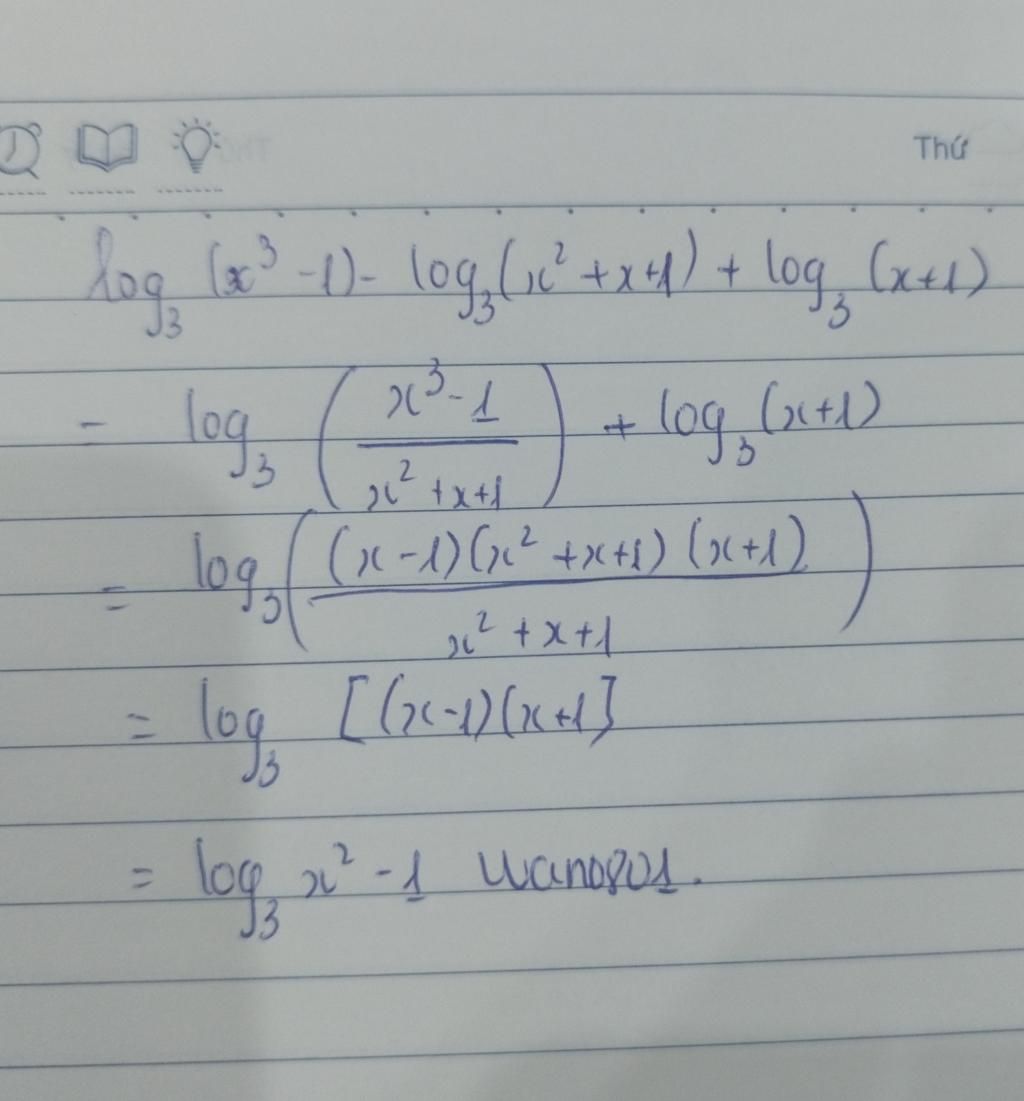 Thứ
log₃ (x³ -1) - log₃ (x² + x+1) + log₃ (x+1)
= log₃ ( (x³ -1) / (x² +x+1) ) + log₃ (x+1)
= log₃ ( (x -1)(x² +x+1) (x+1) / (x² + x+1) )
= log₃ [(x-1)(x+1]
= log₃ x² -1 wano801.